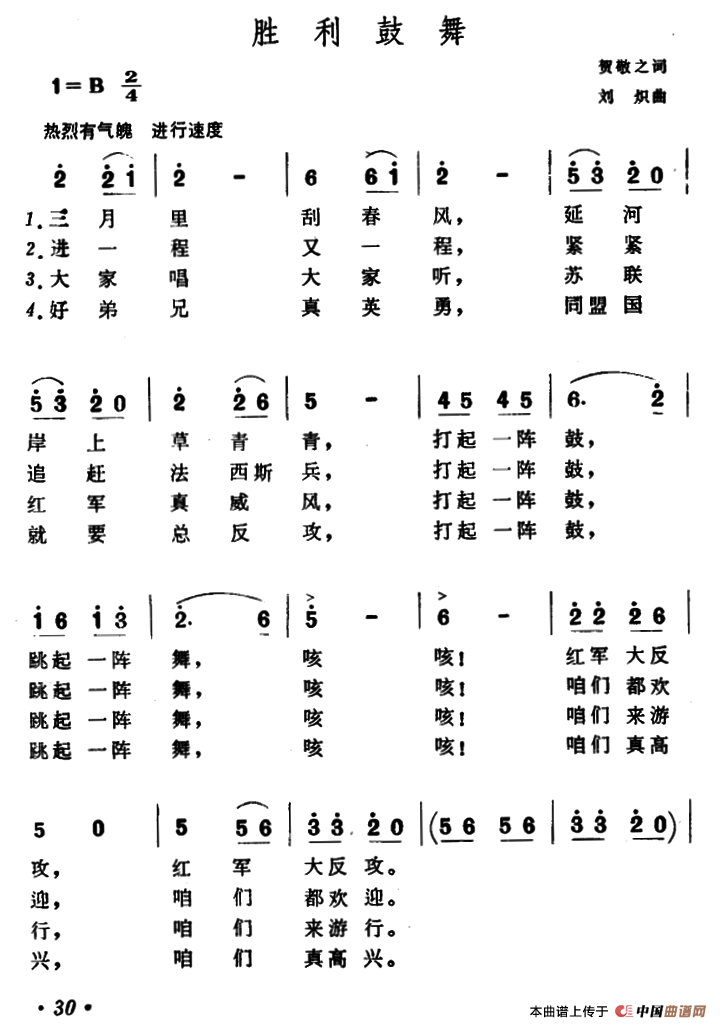 胜利鼓舞
贺敬之词
1=B 2/4
刘炽曲
热烈有气魄 进行速度
2̇ 2̇1̇ | 2̇ - | 6 61̇ | 2̇ - | 5̇3̇ 2̇0 |
1.三月里 刮春风, 延河
2.进一程 又一程, 紧紧
3.大家唱 大家听, 苏联
4.好弟兄 真英勇, 同盟国
5̇3̇ 2̇0 | 2̇ 2̇6 | 5 - | 45 45 | 6. 2̇ |
岸上 草青青, 打起一阵鼓,
追赶 法西斯兵, 打起一阵鼓,
红军 真威风, 打起一阵鼓,
就要 总反攻, 打起一阵鼓,
1̇6 1̇3̇ | 2̇. 6 | 5̇ - | 6 - | 2̇2̇ 2̇6 |
跳起一阵舞, 咳 咳! 红军大反
跳起一阵舞, 咳 咳! 咱们都欢
跳起一阵舞, 咳 咳! 咱们来游
跳起一阵舞, 咳 咳! 咱们真高
5 0 | 5 56 | 3̇3̇ 2̇0 | (56 56 | 3̇3̇ 2̇0) |
攻, 红军 大反攻。
迎, 咱们 都欢迎。
行, 咱们 来游行。
兴, 咱们 真高兴。
·30·
本曲谱上传于 中国曲谱网